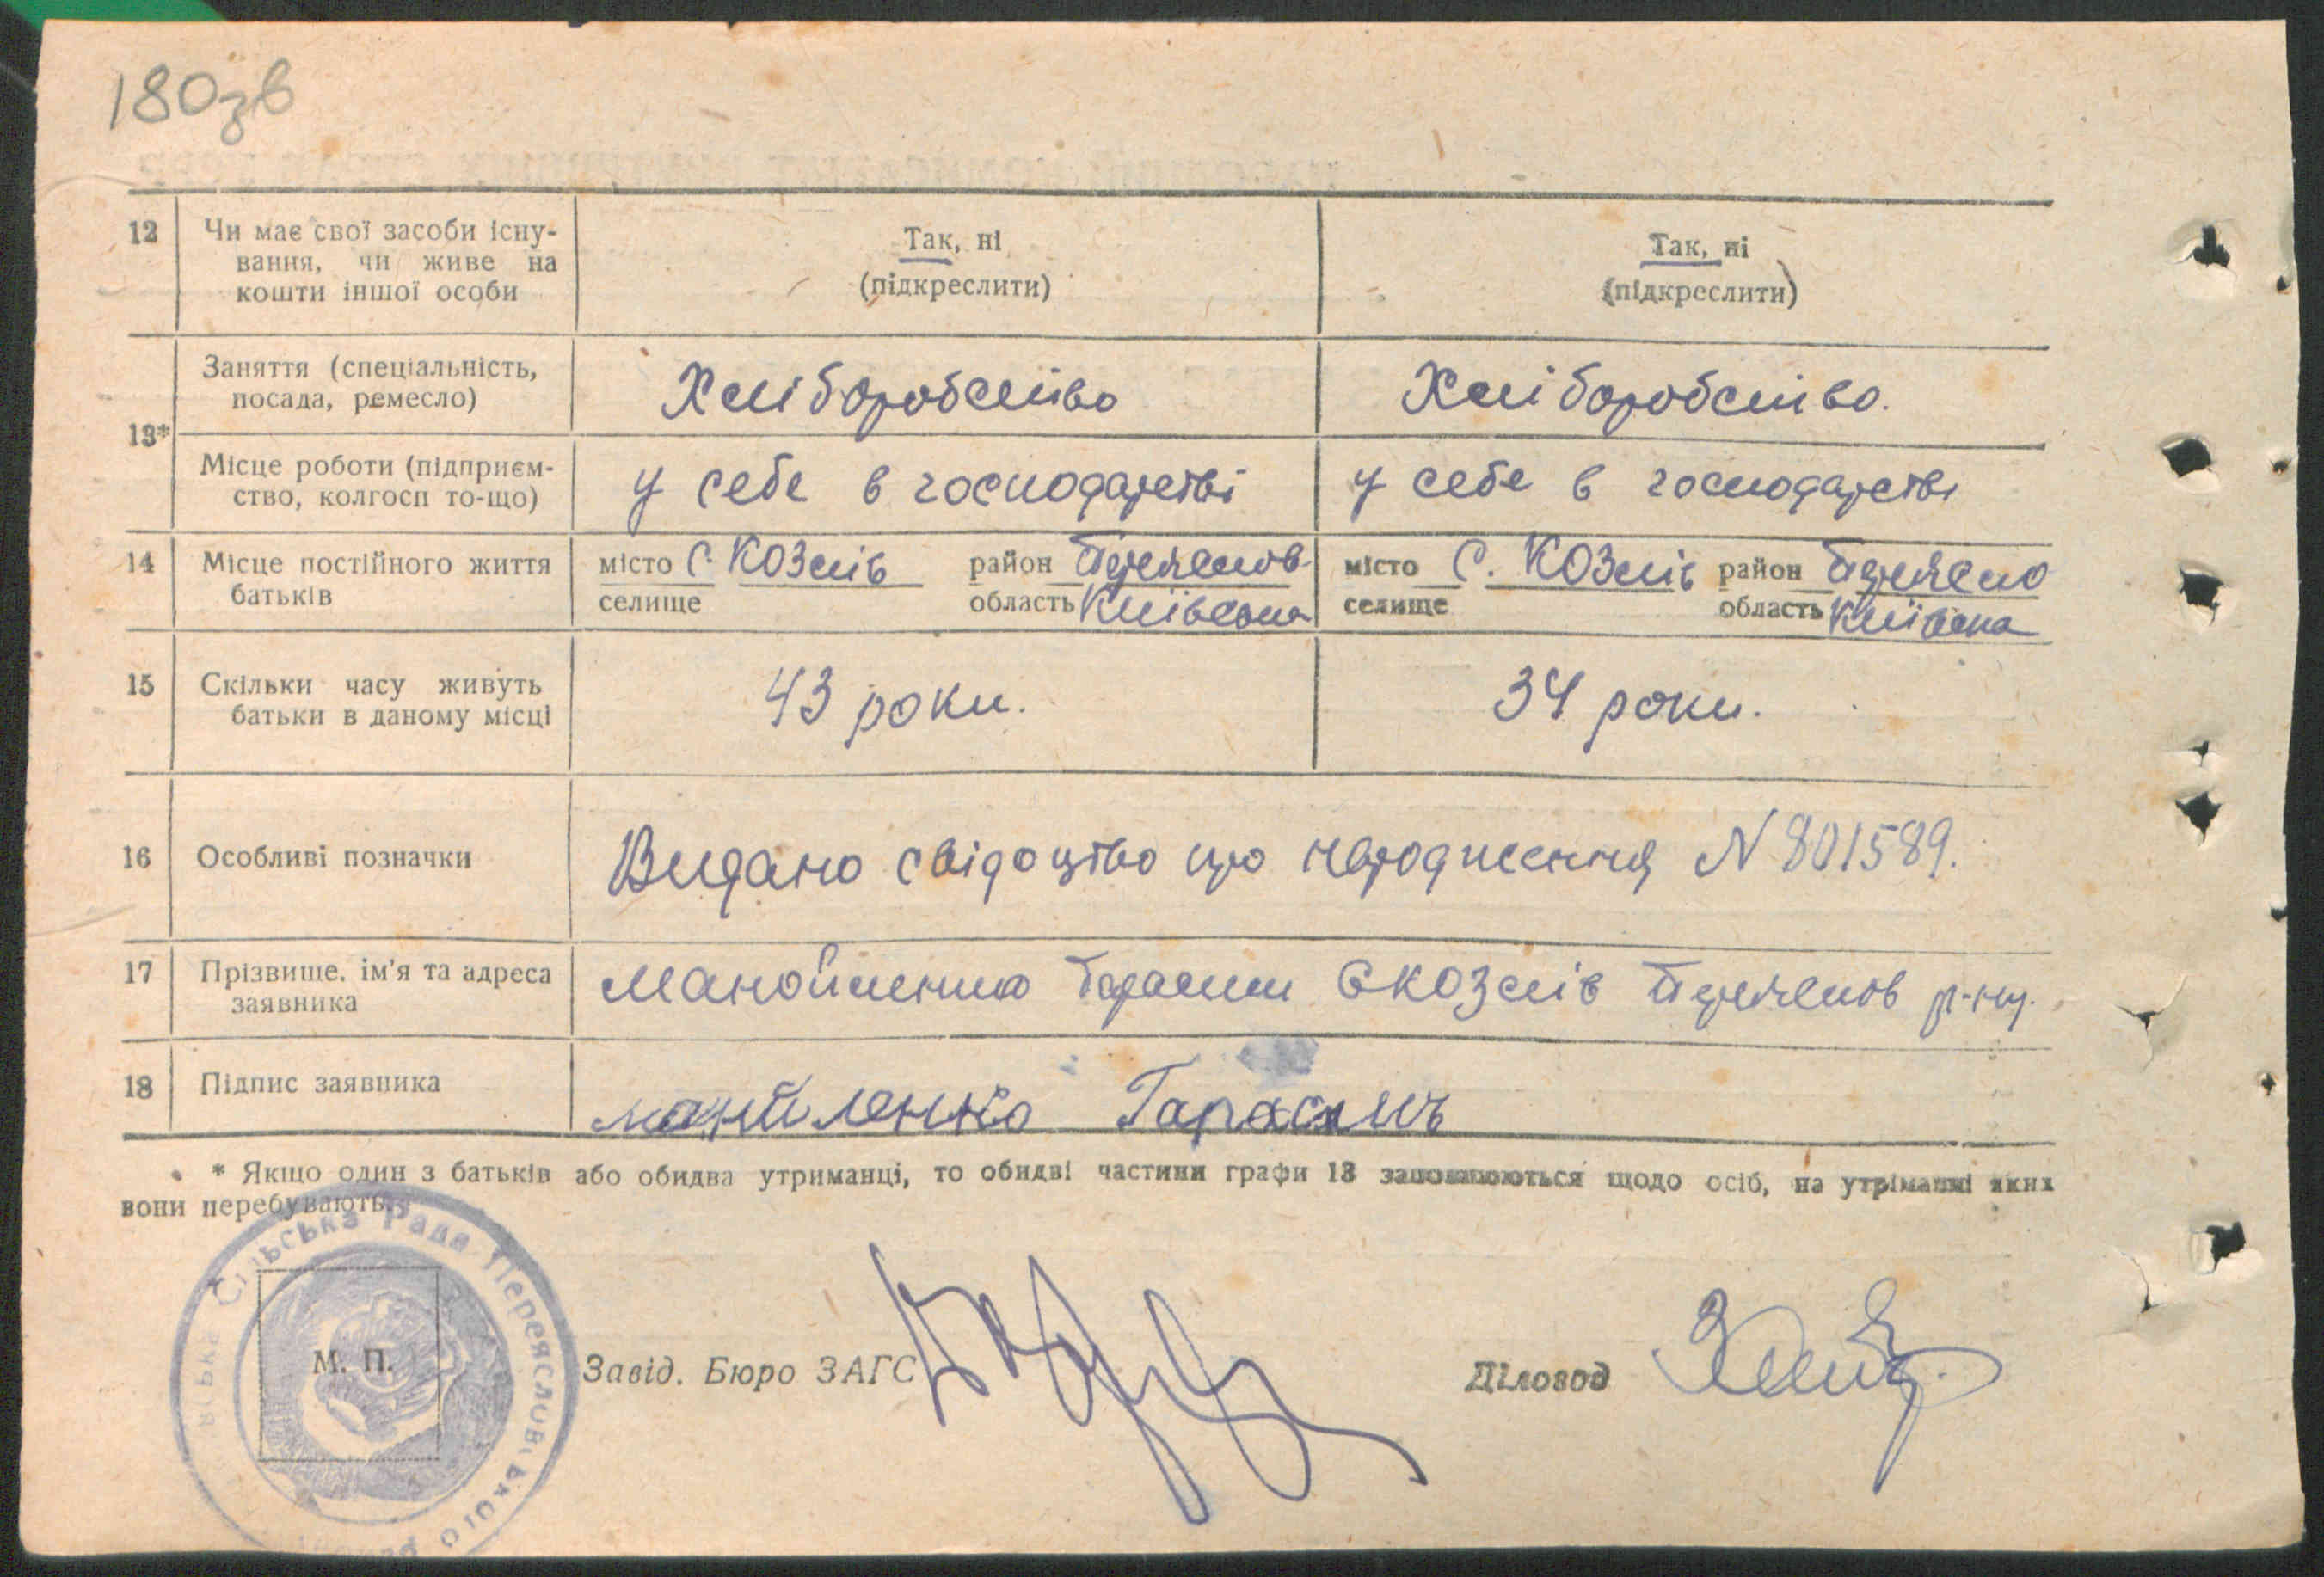 180зв
12 Чи має свої засоби існу- Так, ні Так, ні
вання, чи живе на (підкреслити) (підкреслити)
кошти іншої особи
13* Заняття (спеціальність, Хліборобство Хліборобство.
посада, ремесло)
Місце роботи (підприєм- у себе в господарстві у себе в господарстві
ство, колгосп то-що)
14 Місце постійного життя місто С. Козлів район Переяслов- місто С. Козлів район Переясло
батьків селище область Київська селище область Київська
15 Скільки часу живуть 43 роки. 34 роки.
батьки в даному місці
16 Особливі позначки Видано свідоцтво про народження N 801589.
17 Прізвище, ім'я та адреса Манойленко Гарасим С Козлів Переяслов р-ну.
заявника
18 Підпис заявника манйленко Гарасимъ
* Якщо один з батьків або обидва утриманці, то обидві частини графи 13 заповнюються щодо осіб, на утріманні яких
вони перебувають.
Сільська Рада Переясловського
М. П. Завід. Бюро ЗАГС Діловод